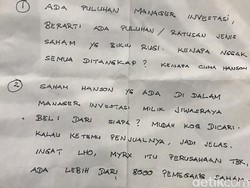 ① ADA PULUHAN MANAGER INVESTASI,
BERARTI ADA PULUHAN / RATUSAN JENIS
SAHAM YG BIKIN RUGI. KENAPA NGGAK
SEMUA DITANGKAP? KENAPA CUMA HANSON
② SAHAM HANSON YG ADA DI DALAM
MANAGER INVESTASI MILIK JIWASRAYA
BELI DARI SIAPA? MUDAH KOQ DICARI.
KALAU KETEMU PENJUALNYA, JADI JELAS.
INGAT LHO, MYRX ITU PERUSAHAAN TBK.
ADA LEBIH DARI 8000 PEMEGANG SAHAM.
detikcom